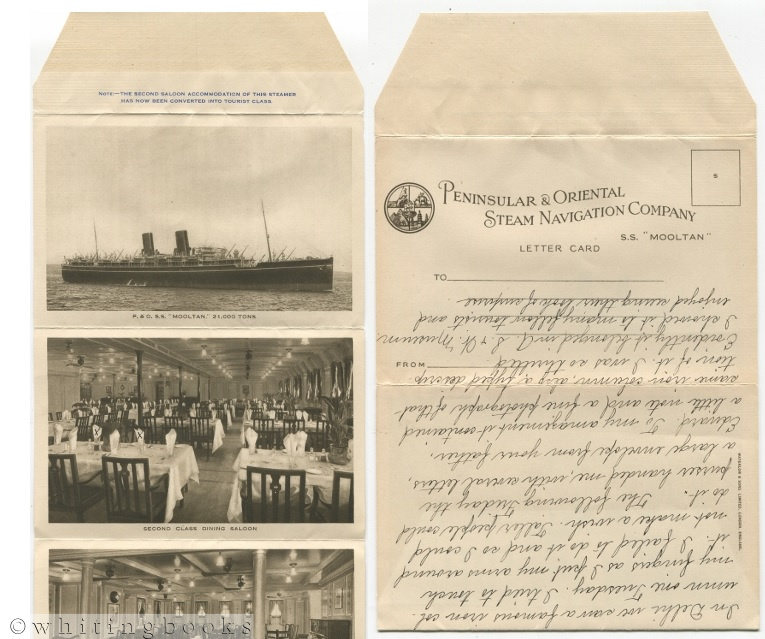 NOTE:—THE SECOND SALOON ACCOMMODATION OF THIS STEAMER
HAS NOW BEEN CONVERTED INTO TOURIST CLASS.
P. & O. S.S. "MOOLTAN." 21,000 TONS
SECOND CLASS DINING SALOON
PENINSULAR & ORIENTAL
STEAM NAVIGATION COMPANY
S.S. "MOOLTAN"
LETTER CARD
S
TO
FROM
In Delhi we saw a famous iron col-
umn one Tuesday. I tried to touch
my fingers as I put my arms around
it. I failed to do it and so I could
not make a wish. Taller people could
do it. The following Friday the
purser handed me, with several letters,
a large envelope from your father,
Edward. To my amazement it contained
a little note and a fine photograph of that
same iron column also a typed descrip-
tion of it. I was so thrilled
Evidently it belonged in Museum
I showed it to many fellow tourists and
enjoyed seeing their look of surprise
© whitingbooks